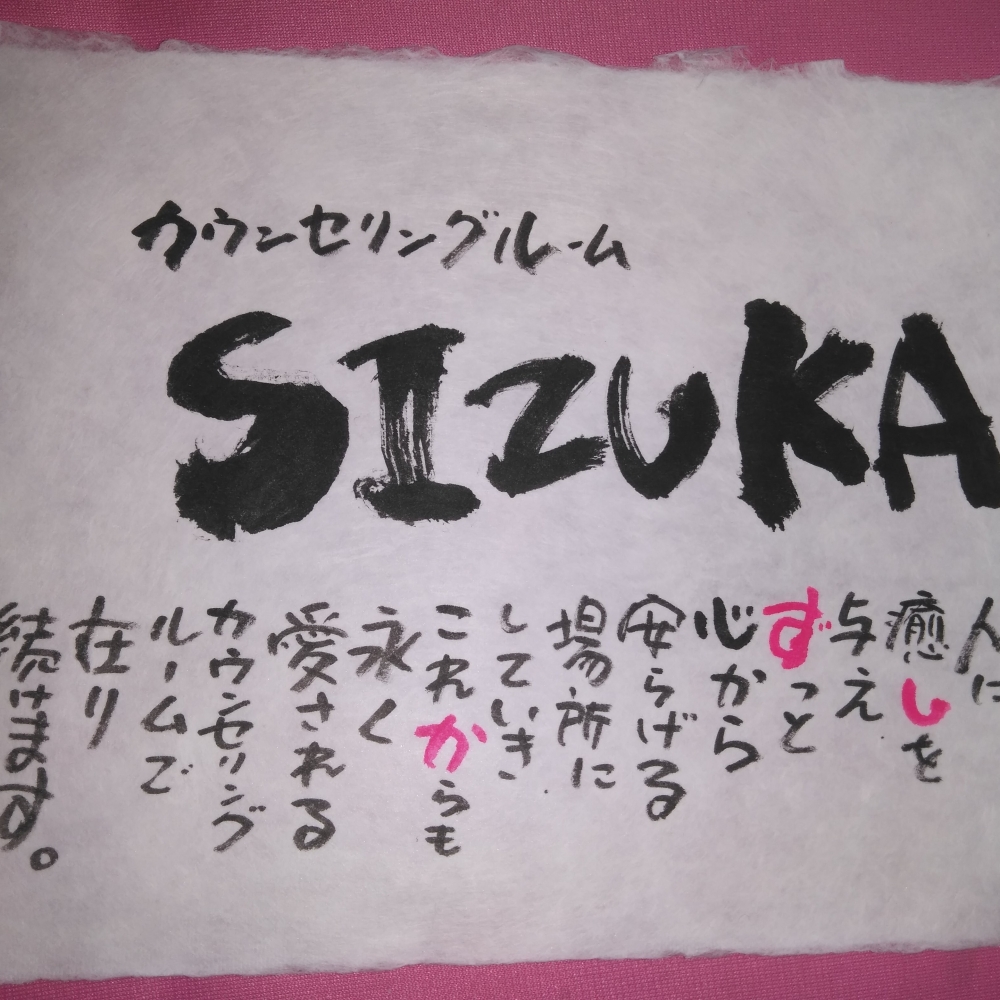 カウンセリングルーム
SIZUKA
人に
癒しを
与え
ずっと
心から
安らげる
場所に
していき
これからも
永く
愛される
カウンセリング
ルームで
在り
続けます。